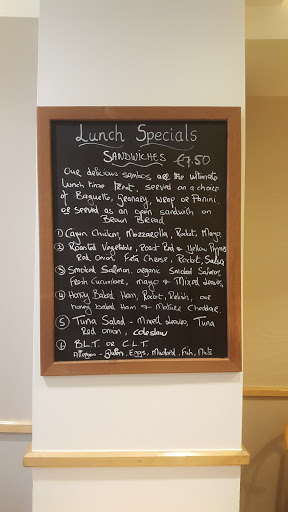 Lunch Specials
SANDWICHES €7.50
Our delicious sambos are the ultimate
lunch time treat, served on a choice
of Baguette, Granary, wrap or Panini,
or served as an open sandwich on
Brown Bread
1) Cajun Chicken, Mozzarella, Rocket, Mayo,
2) Roasted Vegetable, Roast Red & Yellow Peppers
Red Onion Feta Cheese, Rocket, Salsa
3) Smoked Salmon, organic Smoked Salmon,
Fresh Cucumber, mayo & Mixed Leaves
4) Honey Baked Ham, Rocket, Relish, our
honey baked Ham & Mature Cheddar.
5) Tuna Salad - Mixed Leaves, Tuna
Red onion, coleslaw
6) B.L.T. or C.L.T.
Allergens - Gluten, Eggs, Mustard, Fish, Nuts